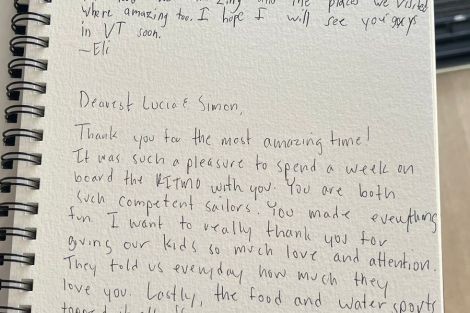 and the places we visited
where amazing too. I hope I will see you guys
in VT soon.
~Eli
Dearest Lucia & Simon,
Thank you for the most amazing time!
It was such a pleasure to spend a week on
board the with you. You are both
such competent sailors. You made everything
fun. I want to really thank you for
giving our kids so much love and attention.
They told us everyday how much they
love you. Lastly, the food and water sports